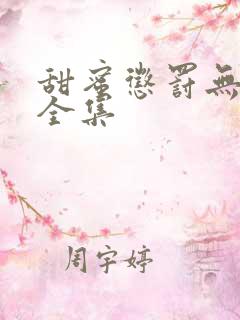 甜蜜懲罰無
全集
周宇婷